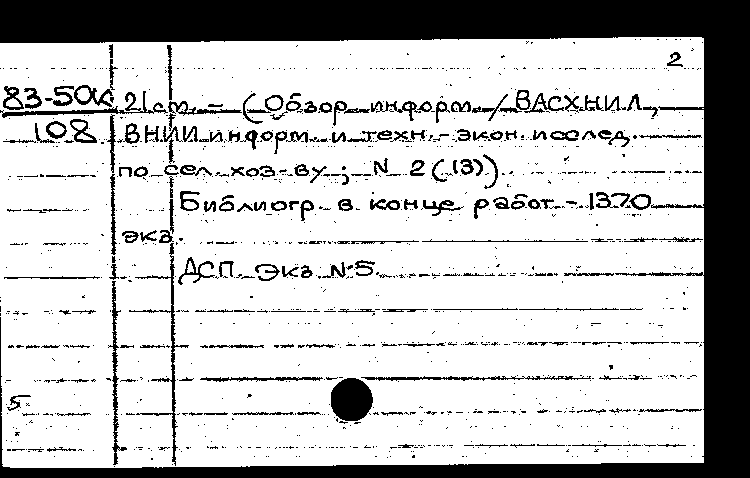 2
83-50к 21 см. - (Обзор. информ. / ВАСХНИЛ,
108 ВНИИ информ. и техн.-экон. исслед.
по сел. хоз-ву; N 2 (13)).
Библиогр. в конце работ - 1370
экз.
ДСП. Экз. N 5.
5